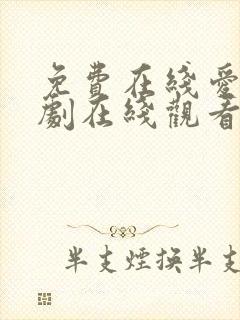 免費在綫愛
劇在綫觀看
半支煙換半支